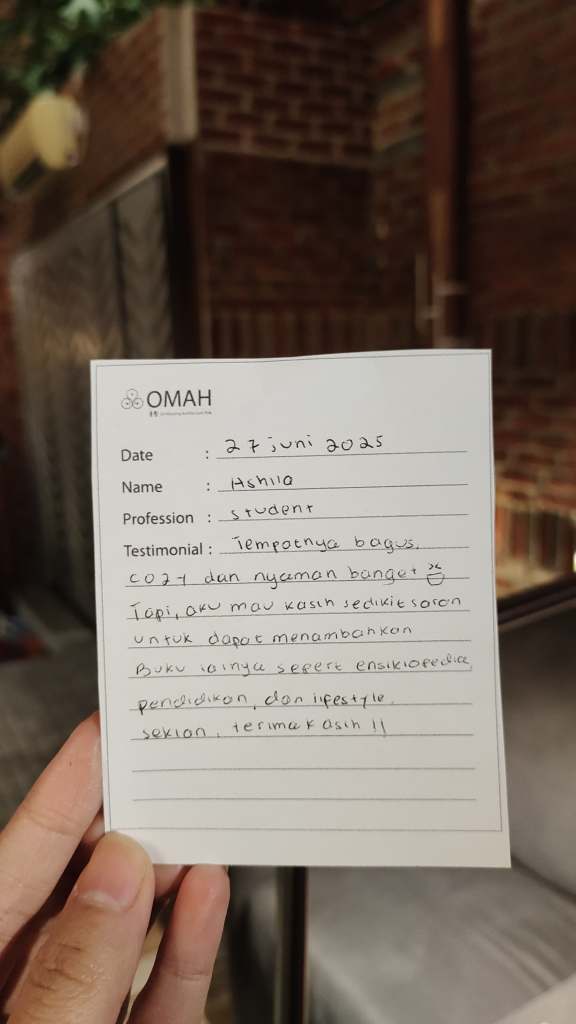 OMAH
Date : 27 juni 2025
Name : Ashila
Profession : student
Testimonial : Tempatnya bagus,
cozy dan nyaman banget
Tapi, aku mau kasih sedikit saran
untuk dapat menambahkan
Buku lainya seperti ensiklopedia,
pendidikan, dan lifestyle.
sekian, terima kasih !!